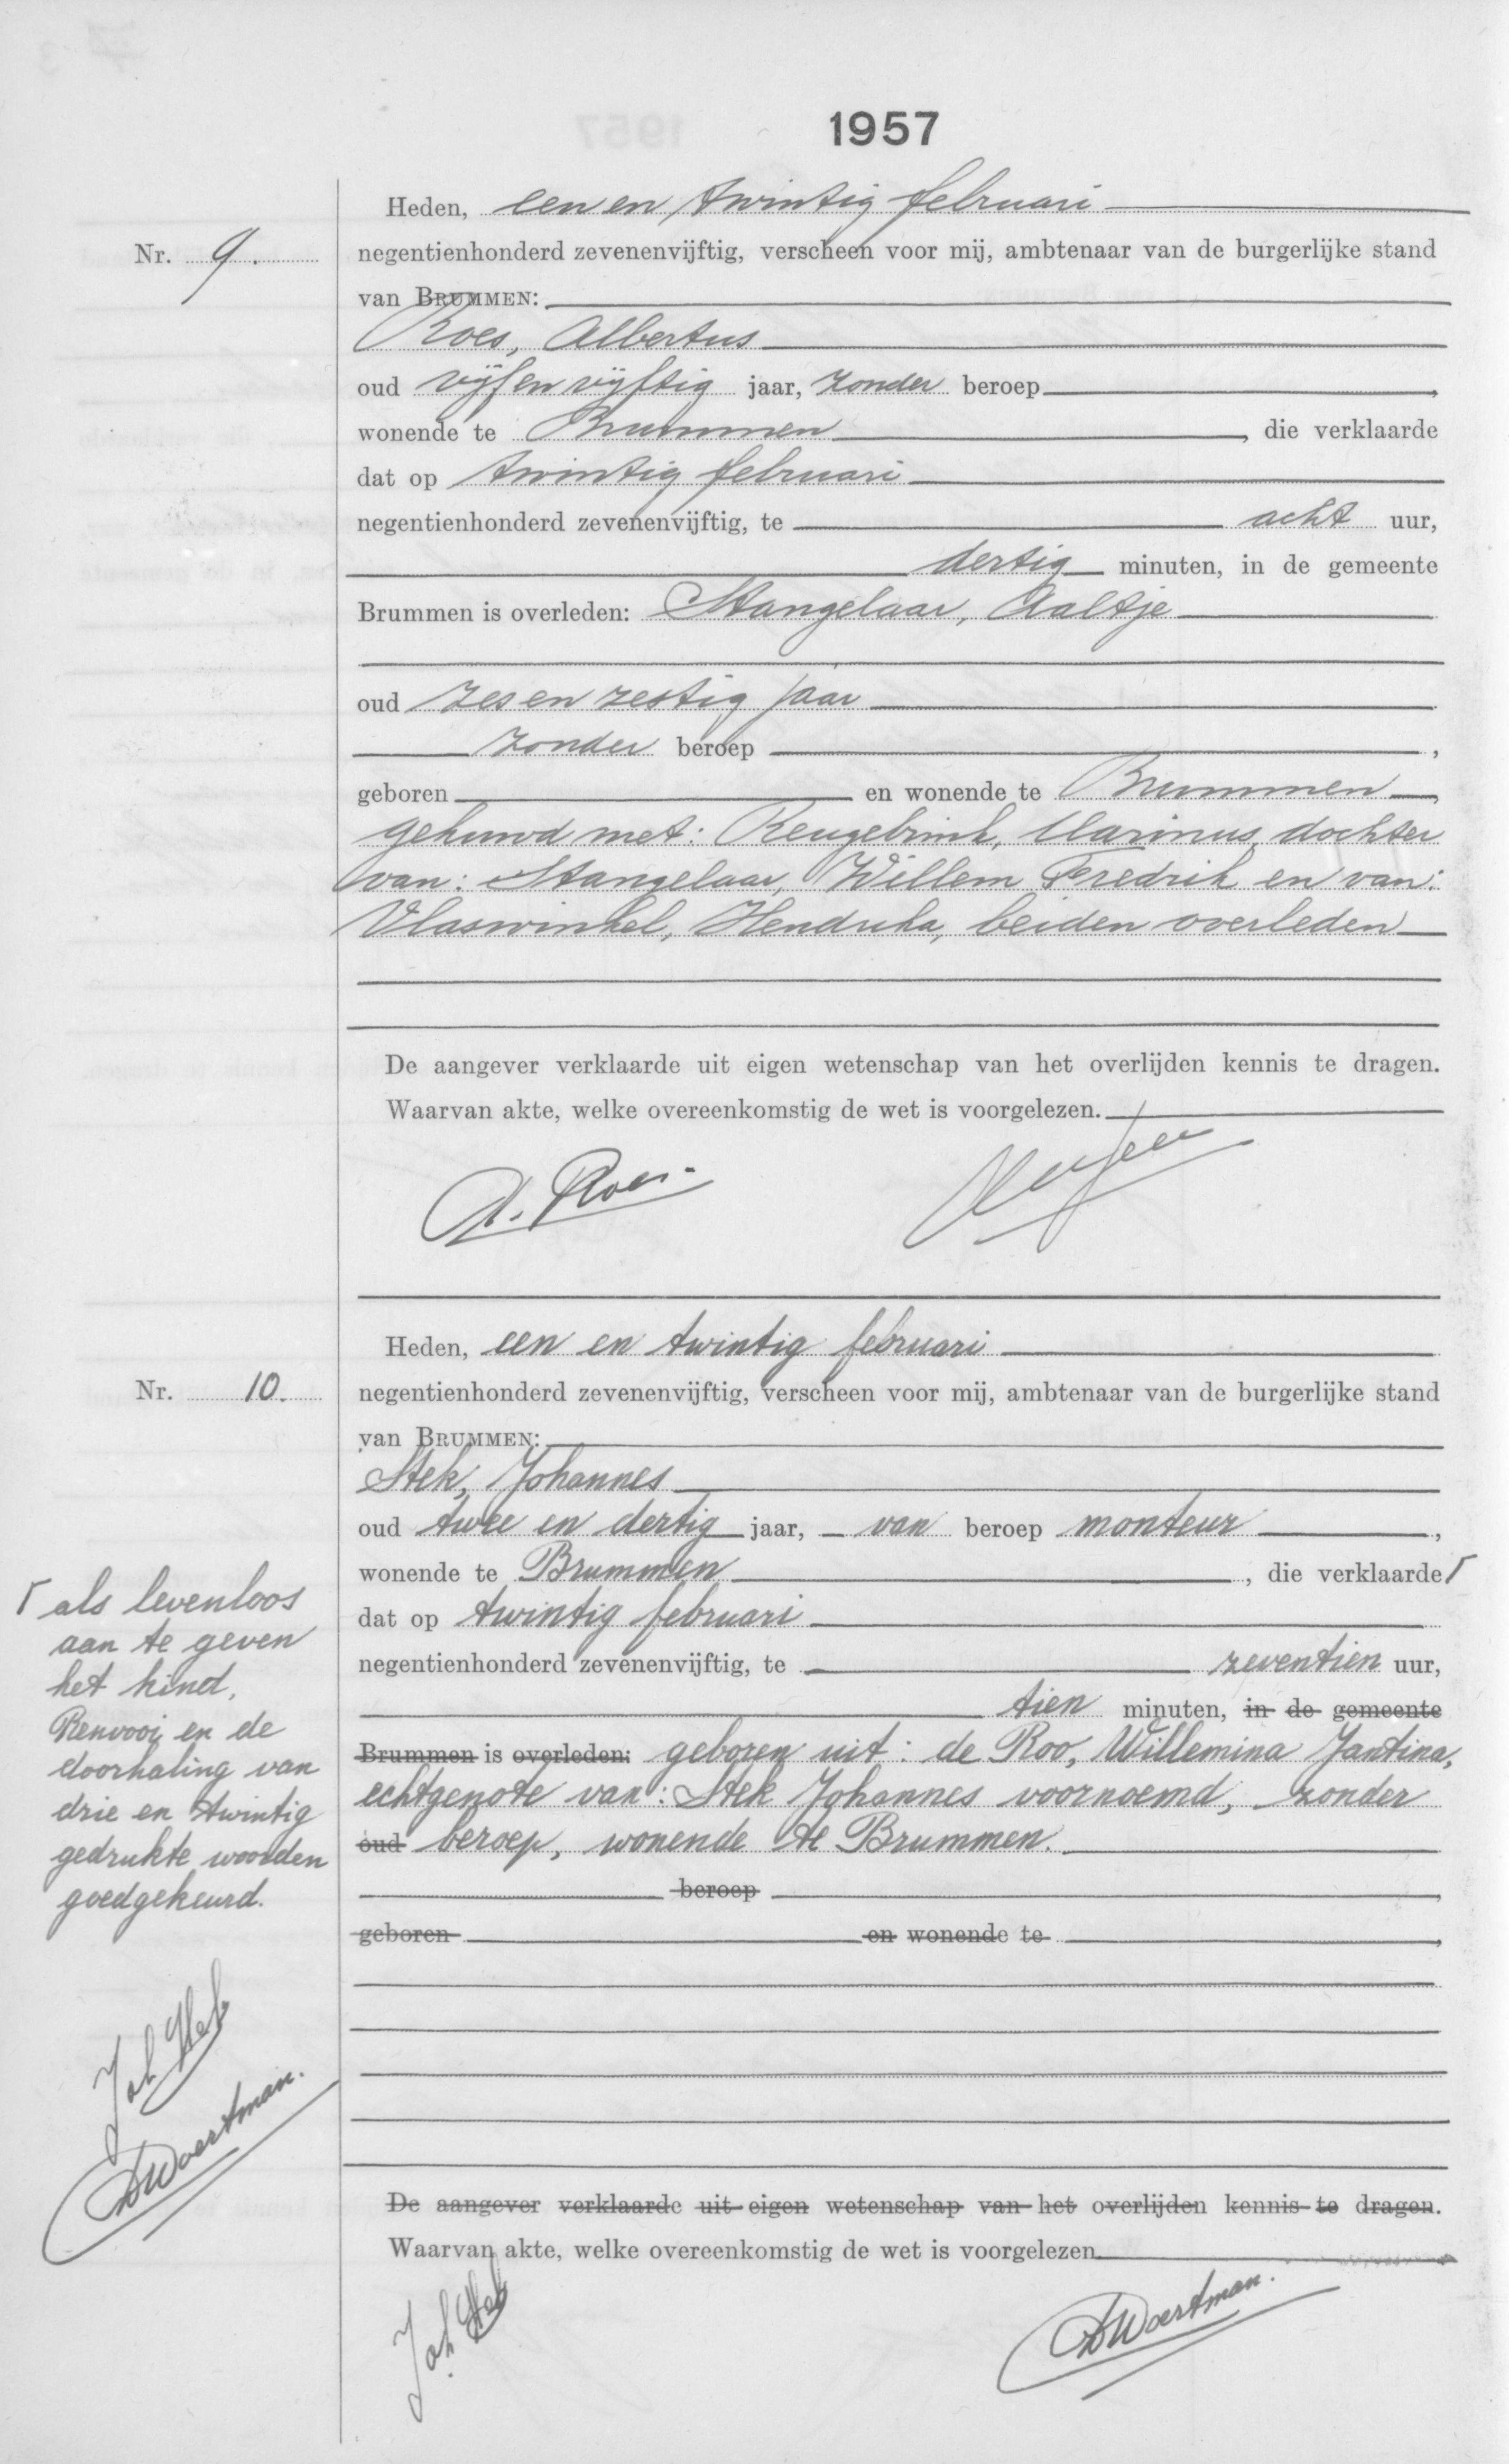 1957
Heden, een en twintig februari
Nr. 9.
negentienhonderd zevenenvijftig, verscheen voor mij, ambtenaar van de burgerlijke stand
van BRUMMEN:
Roes, Albertus
oud vijf en vijftig jaar, zonder beroep,
wonende te Brummen, die verklaarde
dat op twintig februari
negentienhonderd zevenenvijftig, te acht uur,
dertig minuten, in de gemeente
Brummen is overleden: Stangelaar, Aaltje
oud zes en zestig jaar
zonder beroep,
geboren en wonende te Brummen,
gehuwd met: Reugebrink, Marinus, dochter
van: Stangelaar, Willem Fredrik en van:
Vlaswinkel, Hendrika, beiden overleden
De aangever verklaarde uit eigen wetenschap van het overlijden kennis te dragen.
Waarvan akte, welke overeenkomstig de wet is voorgelezen.
A. Roes
Heden, een en twintig februari
Nr. 10.
negentienhonderd zevenenvijftig, verscheen voor mij, ambtenaar van de burgerlijke stand
van BRUMMEN:
Stek, Johannes
oud twee en dertig jaar, van beroep monteur,
wonende te Brummen, die verklaarde Γ
dat op twintig februari
negentienhonderd zevenenvijftig, te zeventien uur,
tien minuten, in de gemeente
Brummen is overleden: geboren uit: de Roo, Willemina Jantina,
echtgenote van: Stek Johannes voornoemd, zonder
oud beroep, wonende te Brummen.
beroep,
geboren en wonende te,
Γ als levenloos
aan te geven
het kind.
Renvooi en de
doorhaling van
drie en twintig
gedrukte woorden
goedgekeurd.
Joh Stek
DWoertman.
De aangever verklaarde uit eigen wetenschap van het overlijden kennis te dragen.
Waarvan akte, welke overeenkomstig de wet is voorgelezen
Joh Stek
DWoertman.